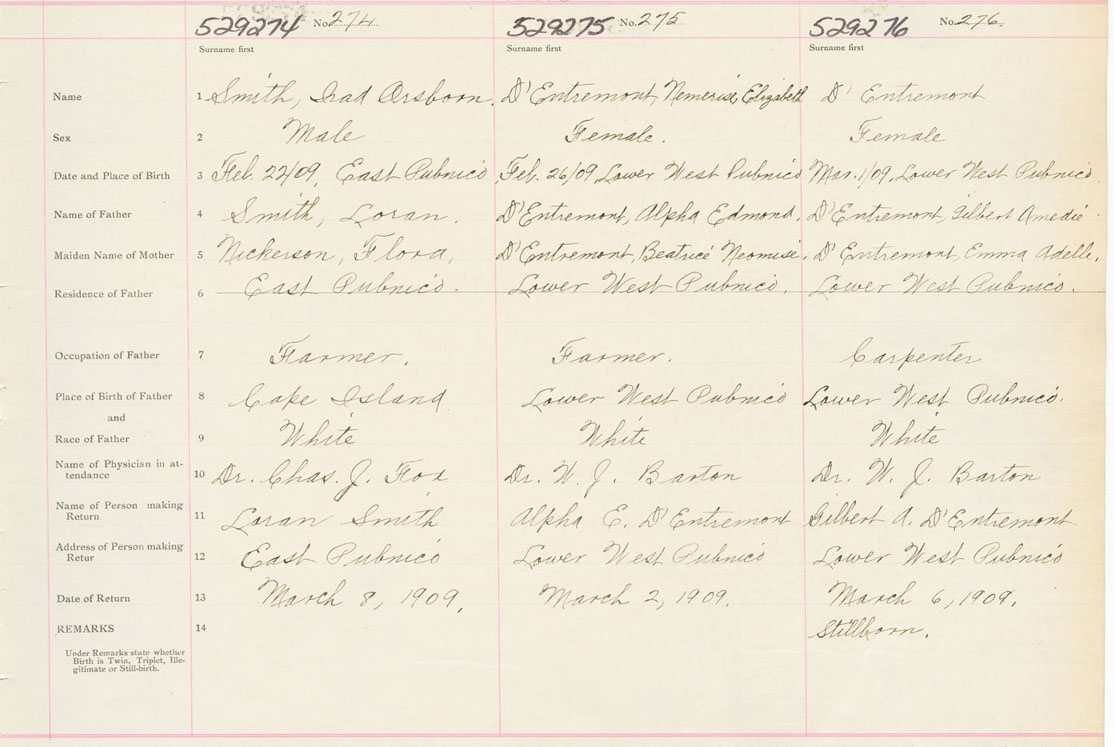 529274 No. 274 529275 No. 275 529276 No. 276.
Surname first Surname first Surname first
Name 1 Smith, Irad Orsborn. D'Entremont, Nemerise, Elizabeth D' Entremont
Sex 2 Male Female. Female
Date and Place of Birth 3 Feb. 22/09, East Pubnico Feb. 26/09, Lower West Pubnico Mar. 1/09, Lower West Pubnico.
Name of Father 4 Smith, Loran. D'Entremont, Alpha Edmond. D'Entremont, Gilbert Amedie
Maiden Name of Mother 5 Nickerson, Flora, D'Entremont, Beatrice Neomise. D'Entremont, Emma Adelle.
Residence of Father 6 East Pubnico. Lower West Pubnico. Lower West Pubnico.
Occupation of Father 7 Farmer. Farmer. Carpenter
Place of Birth of Father 8 Cape Island Lower West Pubnico Lower West Pubnico.
and
Race of Father 9 White White White
Name of Physician in at-
tendance 10 Dr. Chas. J. Fox Dr. W. J. Barton Dr. W. J. Barton
Name of Person making
Return 11 Loran Smith Alpha E. D'Entremont Gilbert A. D'Entremont
Address of Person making
Retur 12 East Pubnico Lower West Pubnico Lower West Pubnico
Date of Return 13 March 8, 1909. March 2, 1909. March 6, 1909.
REMARKS 14 Stillborn.
Under Remarks state whether
Birth is Twin, Triplet, Ille-
gitimate or Still-birth.